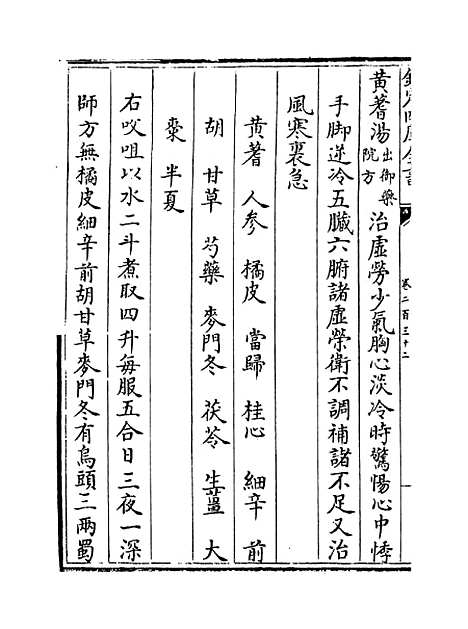 欽定四庫全書
卷二百三十二
黄蓍湯出御藥院方 治虛勞少氣胸心淡冷時驚惕心中悸
手脚逆冷五臟六腑諸虛榮衛不調補諸不足又治
風寒裹急
黄蓍 人參 橘皮 當歸 桂心 細辛 前
胡 甘草 芍藥 麥門冬 茯苓 生薑 大
棗 半夏
右㕮咀以水二斗煮取四升每服五合日三夜一深
師方無橘皮細辛前胡甘草麥門冬有烏頭三兩蜀